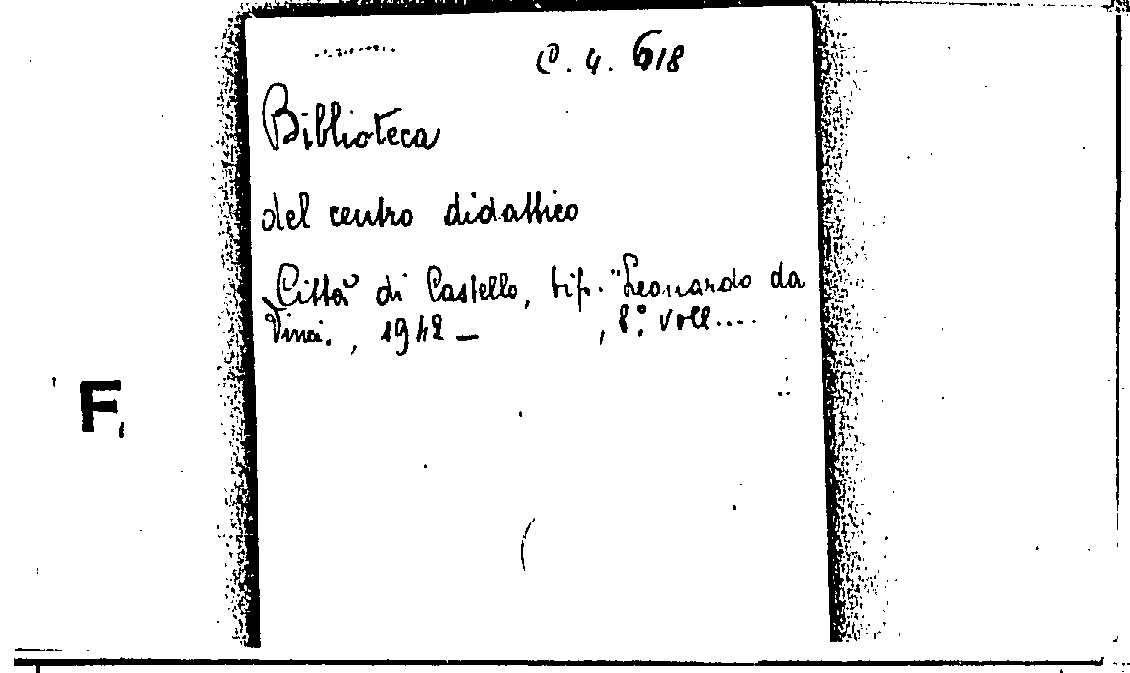 C. 4. 618
Biblioteca
del centro didattico
Città di Castello, tip. "Leonardo da
Vinci. , 1942 - , 8° voll....
F